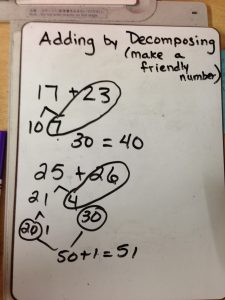 Adding by Decomposing
(make a
friendly
number)
17 + 23
10 7
30 = 40
25 + 26
21 4
20 1 30
50+1=51